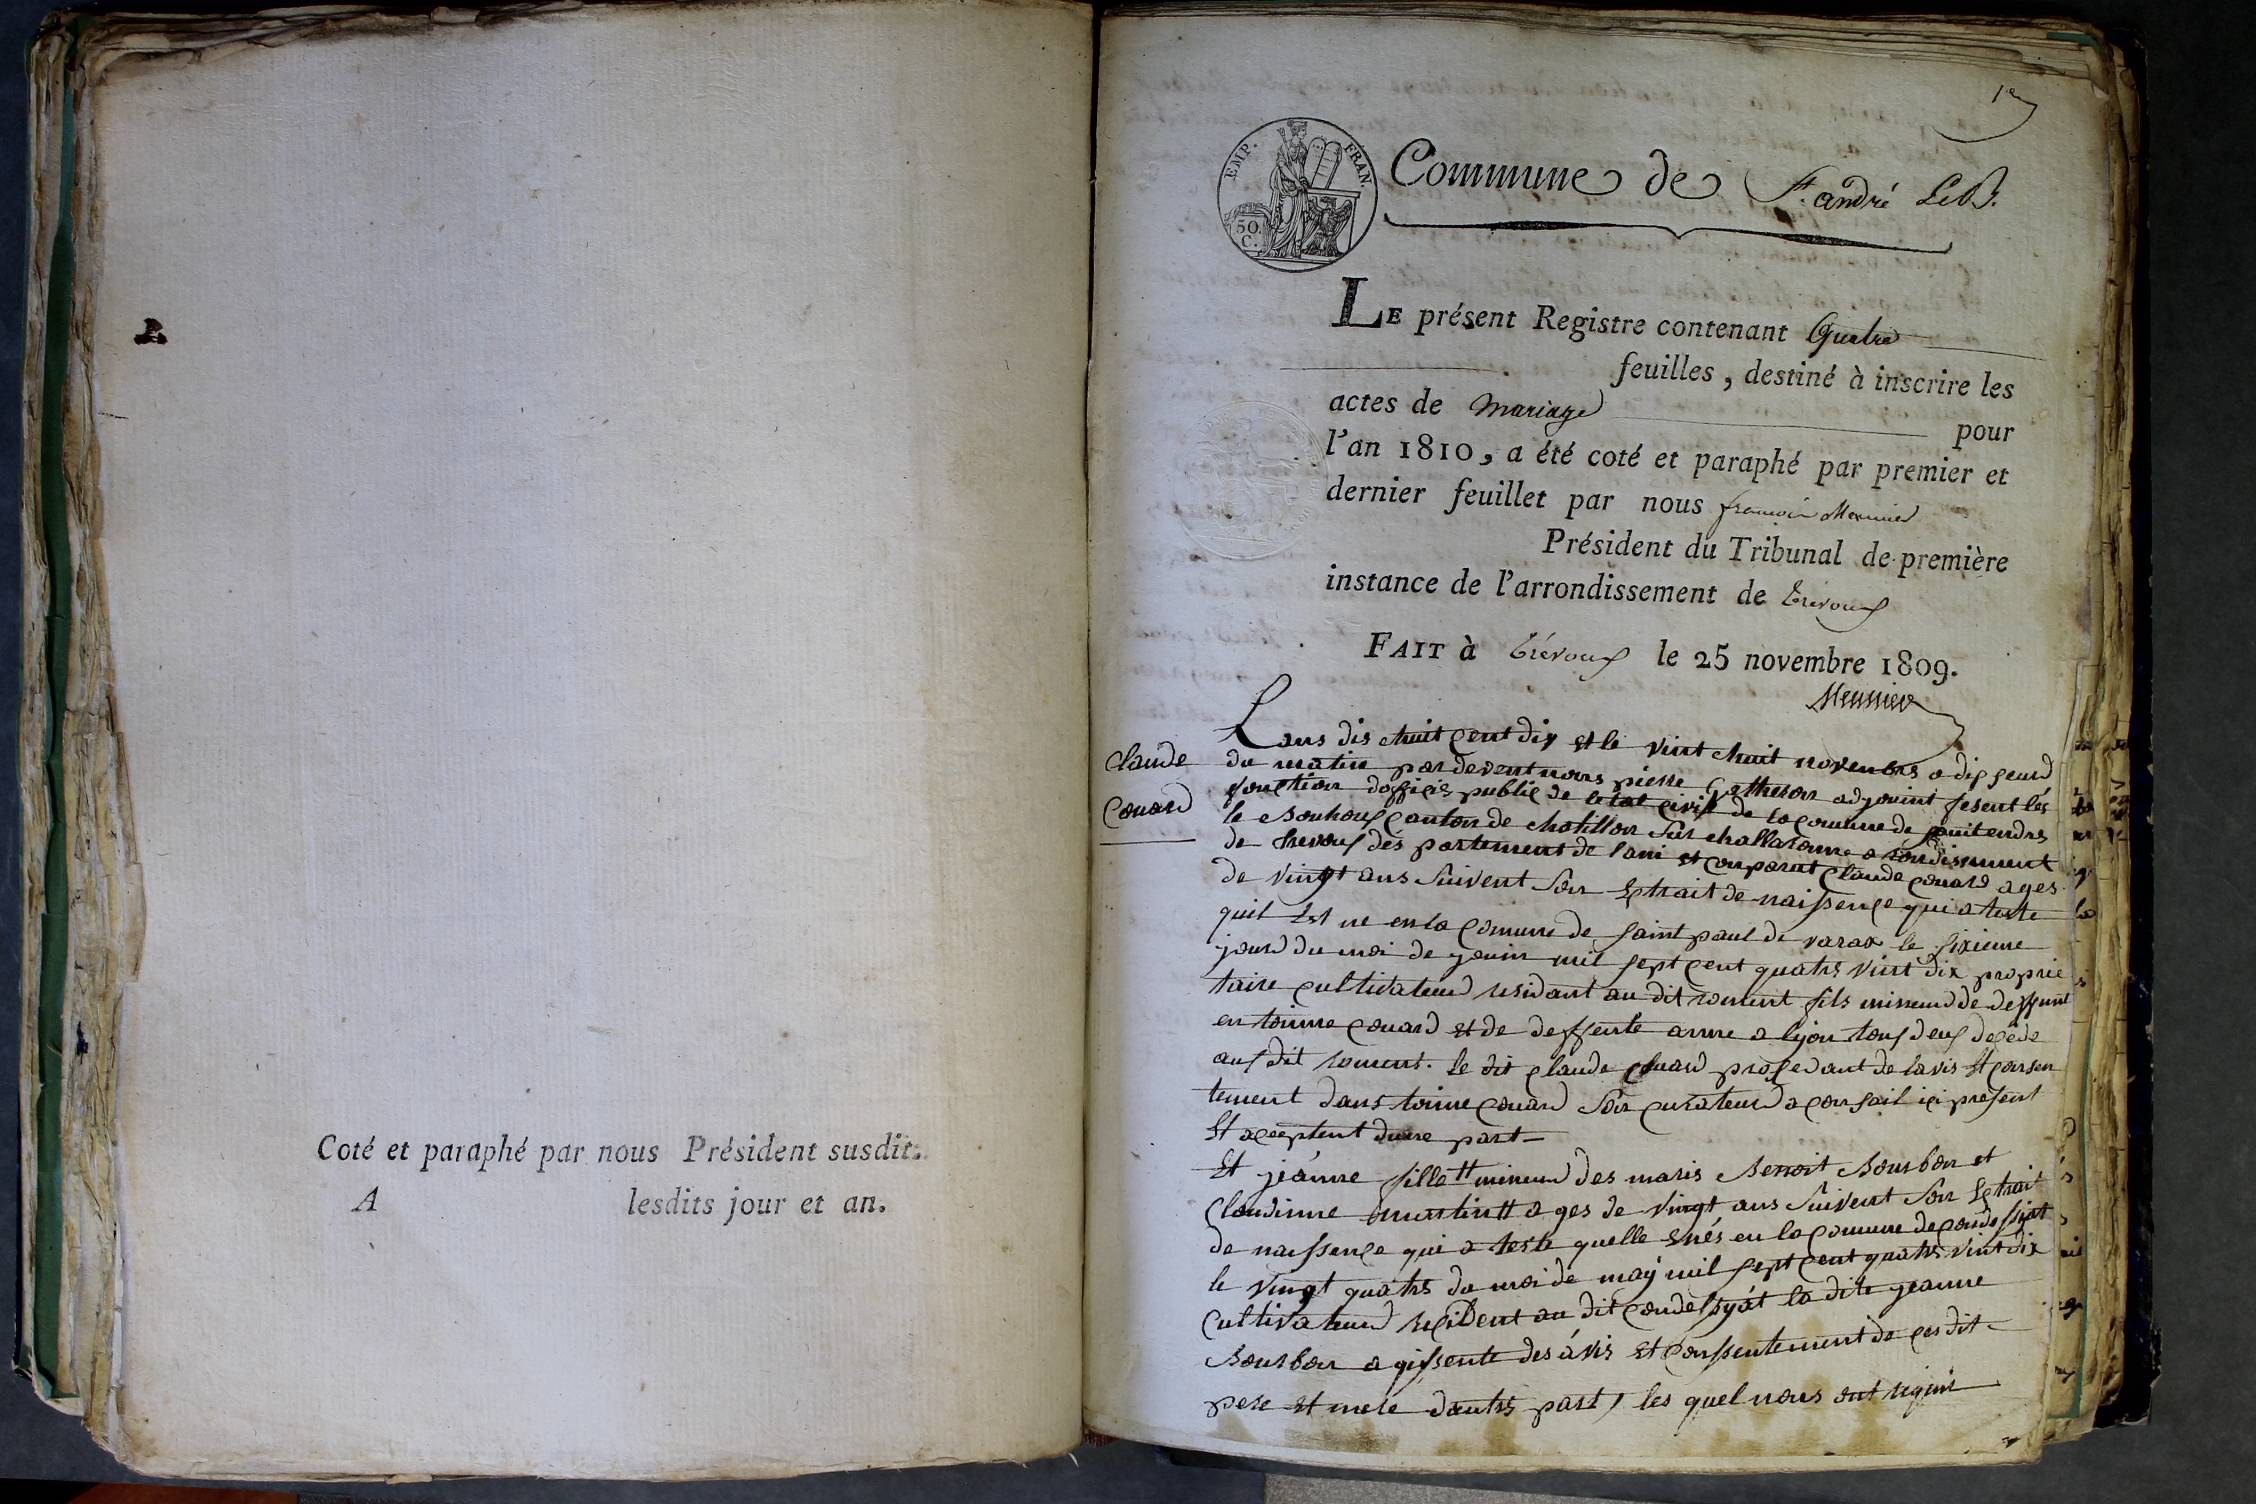 Coté et paraphé par nous Président susdit.
A lesdits jour et an.
1er
EMP. FRAN.
50. C.
Commune de St. andré Le B.
LE présent Registre contenant Quatre
feuilles, destiné à inscrire les
actes de mariage pour
l'an 1810, a été coté et paraphé par premier et
dernier feuillet par nous françois Meunier
Président du Tribunal de première
instance de l'arrondissement de Trevoux
FAIT à Trévoux le 25 novembre 1809.
Meunier
claude
Couard
Lans dis chuit cent dix et le vint chuit novenbre a dix heurd
du matin par devent nous pierre Gatheron adjouint fesent lés
fonction dofficis public de letat civil de la comune de sauit endres
le Bouhoux canton de chatillon sur challaronne a rondisement
de trevoux dés partement de lain et conparut claude couard ages
de vingt ans suivent son extrait de naissence qui a teste
quil Est ne en la comune de saint paul de varax le sixieme
jourd du moi de jouin mil sept cent quatrs vint dix proprie
taire cultivateurd residant au dit roment fils mineurd de deffunt
en toinne couard et de deffente anne a lyon tous deux decede
aux dit roment. le dit claude couard procedant de lavis et consen
tement dans toinne couard son curateurd a consail ici present
Et aceptent dune part
Et jeánne fille tt mineurd des maris Benoit Bourbon et
claudinne martin tt a ges de vingt ans suivent son Extrait
de naissence qui a teste quelle e nés en la comune de condessyat
le vingt quatrs du moi de may mil sept cent quatrs vint dix
cultivateurd resident au dit condessyát la dite jeanne
Bourbon a gissente des ávis et conssentement de ces dit
pere et mere dautrs part, les quel nous ont requis